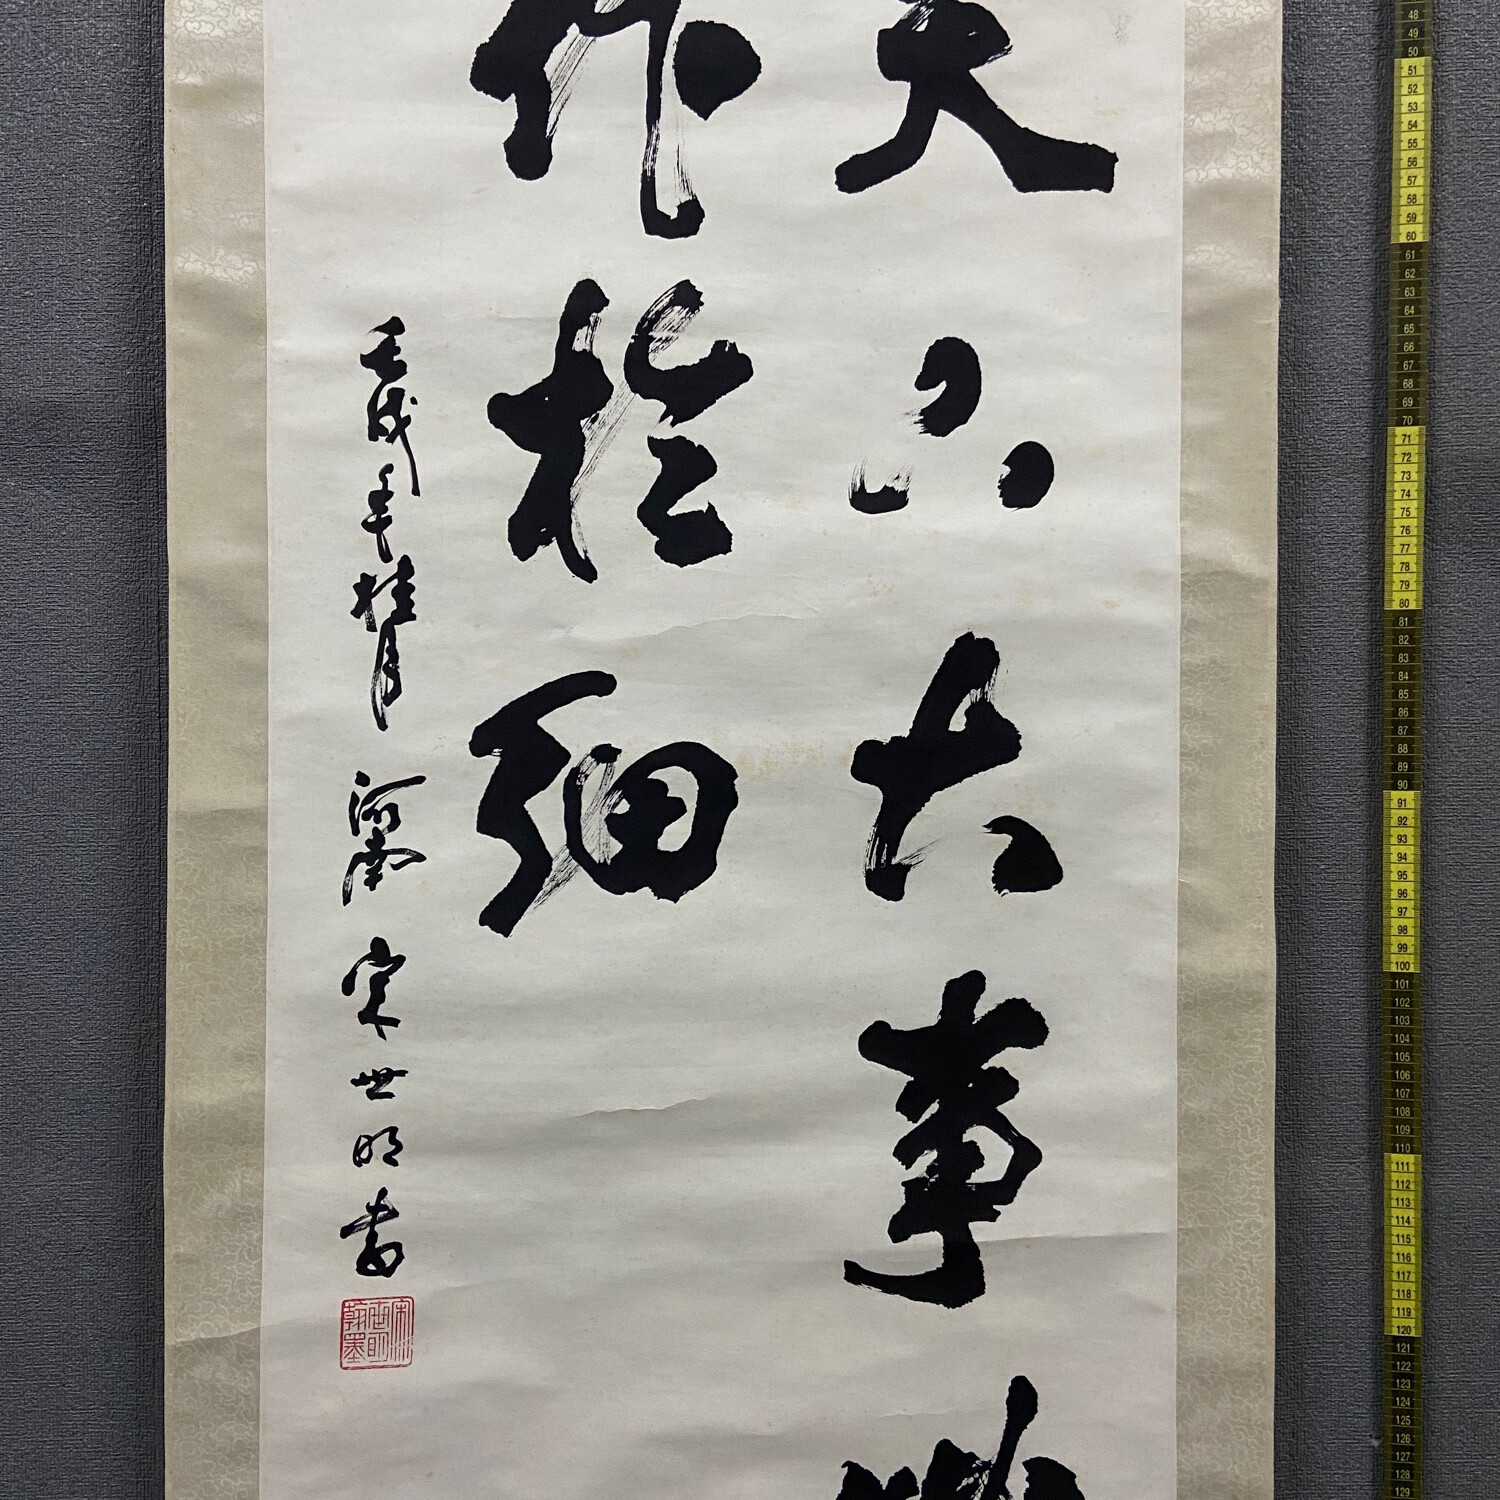 天下大事必
作於細
壬戌年桂月 河南 宋世明書
宋世明翰墨
48
49
50
51
52
53
54
55
56
57
58
59
60
61
62
63
64
65
66
67
68
69
70
71
72
73
74
75
76
77
78
79
80
81
82
83
84
85
86
87
88
89
90
91
92
93
94
95
96
97
98
99
100
101
102
103
104
105
106
107
108
109
110
111
112
113
114
115
116
117
118
119
120
121
122
123
124
125
126
127
128
129